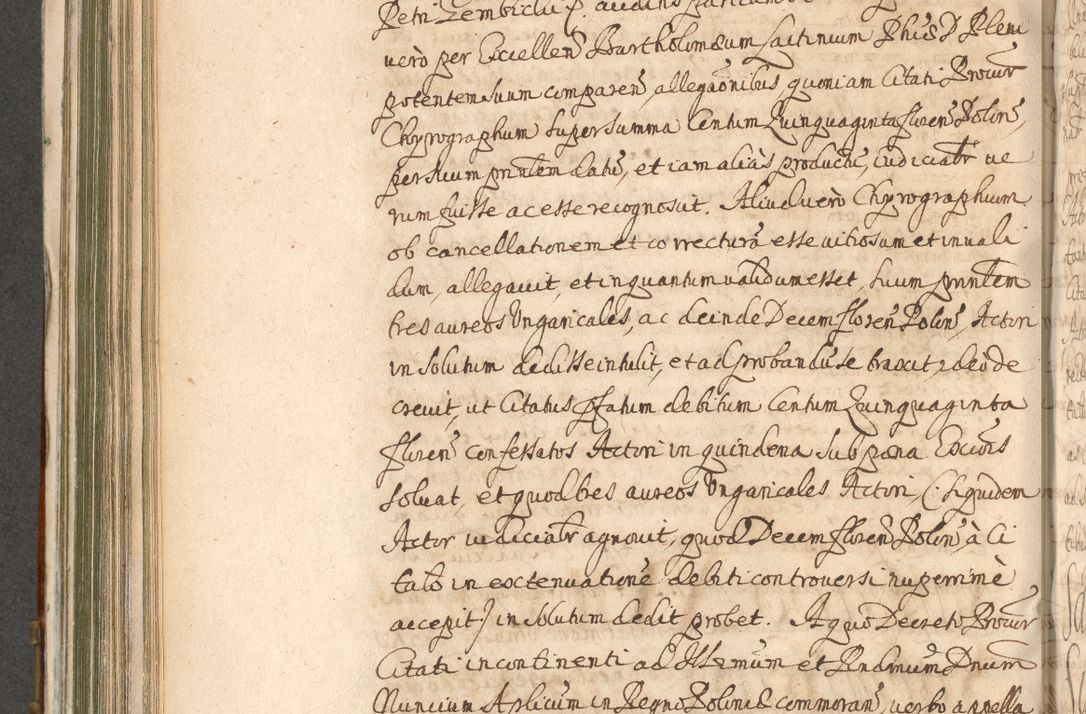 Petri Gembiclii P. auditis partium
verò per Excellen Bartholomæum Jactinium Phiæ D Pleni
potentem suum comparen, allegaōnibus quoniam Citati Procur
Chyrographum super summa Centum Quinquaginta floren Polon,
per suum prntem datū, et iam aliàs productū, iudicialr ve
rum fuisse ac esse recognosuit. Aliud verò Chyrographum
ob cancellationem et correcturā esse vitiosum et inuali
dum, allegauit, et inquantum validum esset, suum prntem
tres aureos Ungaricales, ac deinde Decem floren Polon, Actori
in solutum dedisse intulit, et ad probandū se traxit, ideo de
creuit, ut Citatus pfatum debitum Centum Quinquaginta
floren confessatos Actori in quindena sub pæna Excōis
soluat, et quod tres aureos Ungaricales Actori, (: siquidem
Actor iudicialr agnouit, quod Decem floren Polon, à Ci
tato in extenuationē debiti controuersi nuperrimè
accepit) in solutum dedit probet. A quo Decreto Procur
Citati incontinenti ad Illrmum et Rndmum Dnum
Nuncium Aplicum in Regno Poloniæ commoran, verbo appella